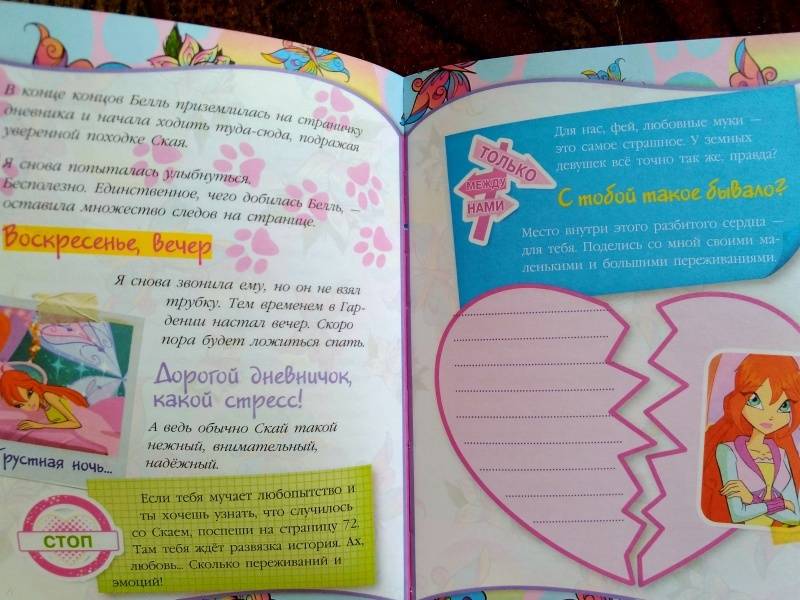 В конце концов Белль приземлилась на страничку
дневника и начала ходить туда-сюда, подражая
уверенной походке Ская.
Я снова попыталась улыбнуться.
Бесполезно. Единственное, чего добилась Белль, —
оставила множество следов на странице.
Воскресенье, вечер
Я снова звонила ему, но он не взял
трубку. Тем временем в Гар-
дении настал вечер. Скоро
пора будет ложиться спать.
Дорогой дневничок,
какой стресс!
А ведь обычно Скай такой
нежный, внимательный,
надёжный.
Грустная ночь...
СТОП
Если тебя мучает любопытство и
ты хочешь узнать, что случилось
со Скаем, поспеши на страницу 72.
Там тебя ждёт развязка история. Ах,
любовь... Сколько переживаний и
эмоций!
ТОЛЬКО
МЕЖДУ
НАМИ
Для нас, фей, любовные муки —
это самое страшное. У земных
девушек всё точно так же, правда?
С тобой такое бывало?
Место внутри этого разбитого сердца —
для тебя. Поделись со мной своими ма-
ленькими и большими переживаниями.